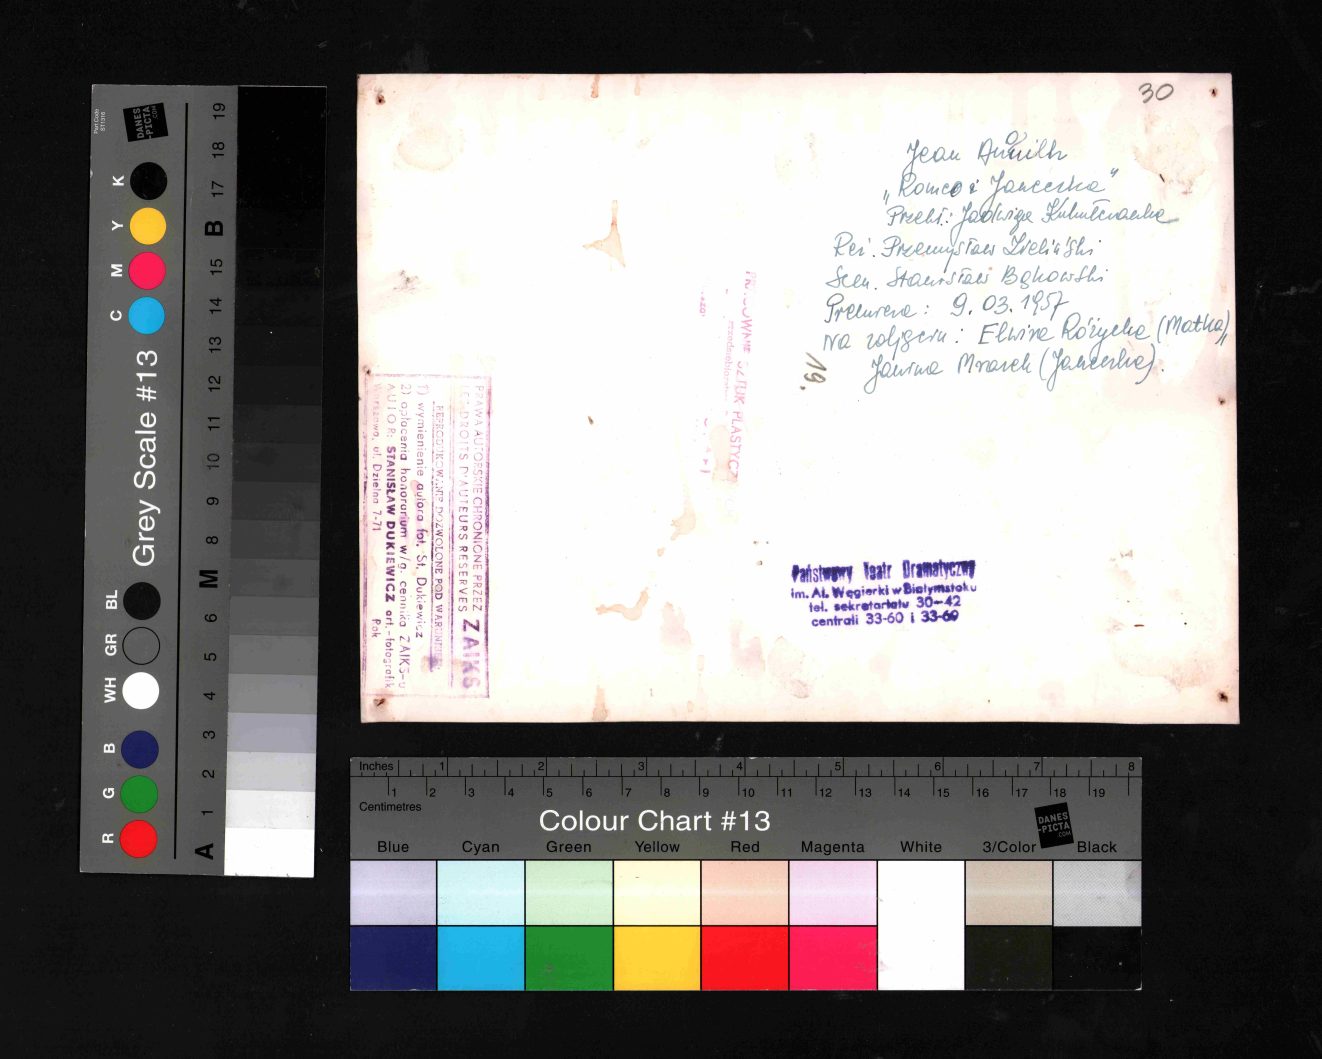 30
Jean Anouilh
„Romeo i Jancerka"
Przekł.: Jadwiga
Reż. Przemysław Zieliński
Scen. Stanisław Bąkowski
Premiera: 9.03.1957
Na zdjęciu: Elwira Różycka (Matka),
Janina Mrazek (Jancerka).
19.
SZTUK PLASTYCZ
PRAWA AUTORSKIE CHRONIONE PRZEZ
DROITS D'AUTEURS RESERVES ZAIKS
REPRODUKOWANIE DOZWOLONE POD WARUNKIEM
1) wymienienie autora fot. St. Dukiewicz
2) opłacenia honorarium w/g. cennika ZAIKS-u
AUTOR: STANISŁAW DUKIEWICZ art.-fotografik
Warszawa, ul. Dzielna 7-71 Pok
Państwowy Teatr Dramatyczny
im. Al. Węgierki w Białymstoku
tel. sekretariatu 30-42
centrali 33-60 i 33-69
Part Code
ST1316
DANES
-PICTA
.COM
Grey Scale #13
K
Y
M
C
BL
GR
WH
B
G
R
19
18
17
B
15
14
13
12
11
10
9
8
M
6
5
4
3
2
1
A
Inches 1 2 3 4 5 6 7 8
1 2 3 4 5 6 7 8 9 10 11 12 13 14 15 16 17 18 19
Centimetres
Colour Chart #13
DANES
-PICTA
.COM
Blue Cyan Green Yellow Red Magenta White 3/Color Black